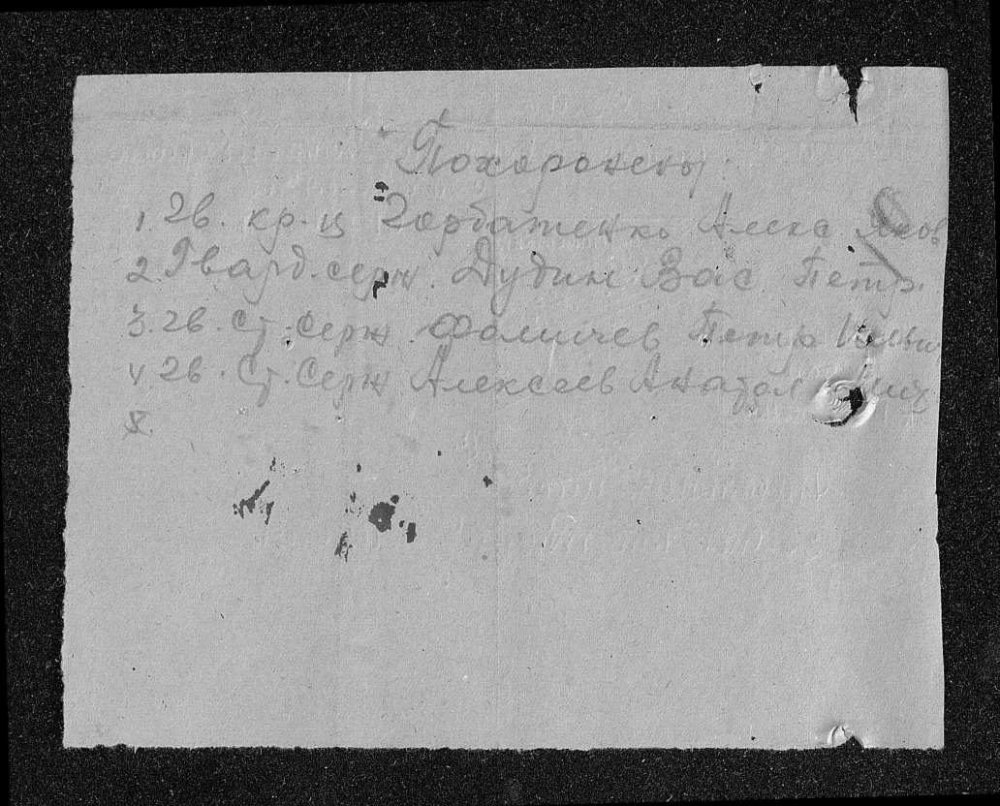 Похоронены
1. Гв. кр-ц Горбатенко Алекс Яков
2. Гвард. серж. Дудин Вас Петр.
3. Гв. Ст. Серж Фомичев Петр
4. Гв. Ст. Серж Алексеев Анатол